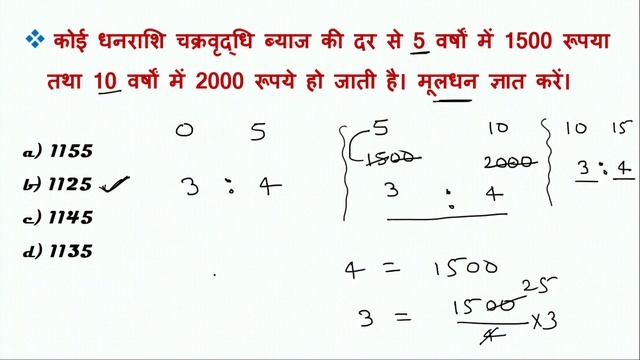 ❖ कोई धनराशि चक्रवृद्धि ब्याज की दर से 5 वर्षों में 1500 रूपया
तथा 10 वर्षों में 2000 रूपये हो जाती है। मूलधन ज्ञात करें।
a) 1155
b) 1125 ✓
c) 1145
d) 1135
0 5
3 : 4
5 10
1500 2000
3 : 4
10 15
3 : 4
4 = 1500
25
3 = 1500/4 ×3